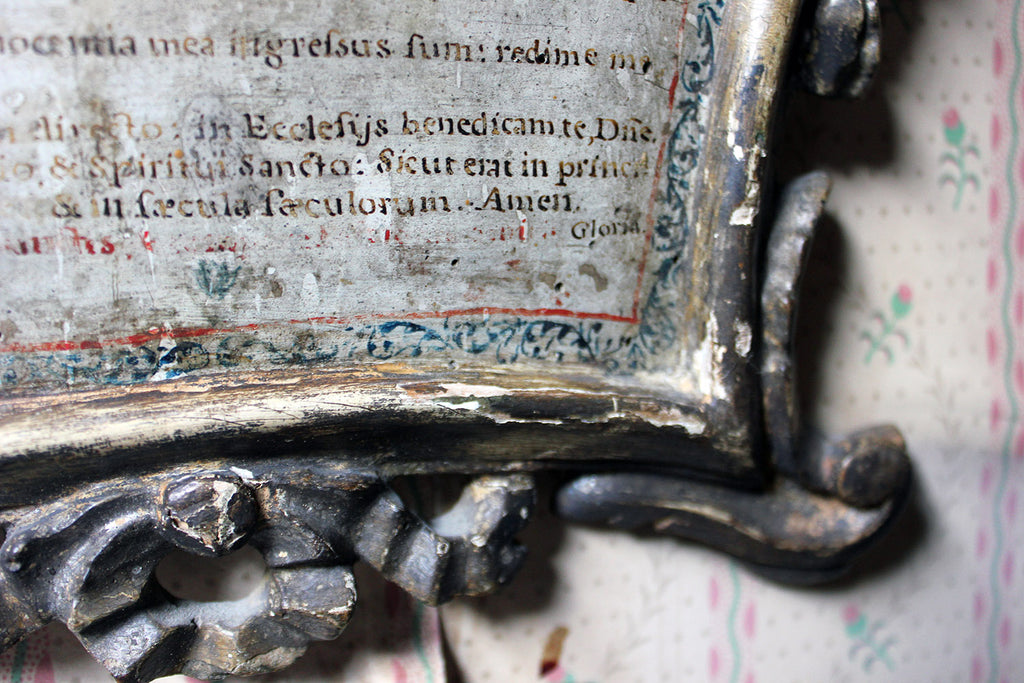 nocentia mea ingreſsus ſum: redime m
directo: in Eccleſijs benedicam te, Dñe.
io, & Spiritui Sancto: Sicut erat in princi
& in ſæcula ſæculorum. Amen.
Gloria